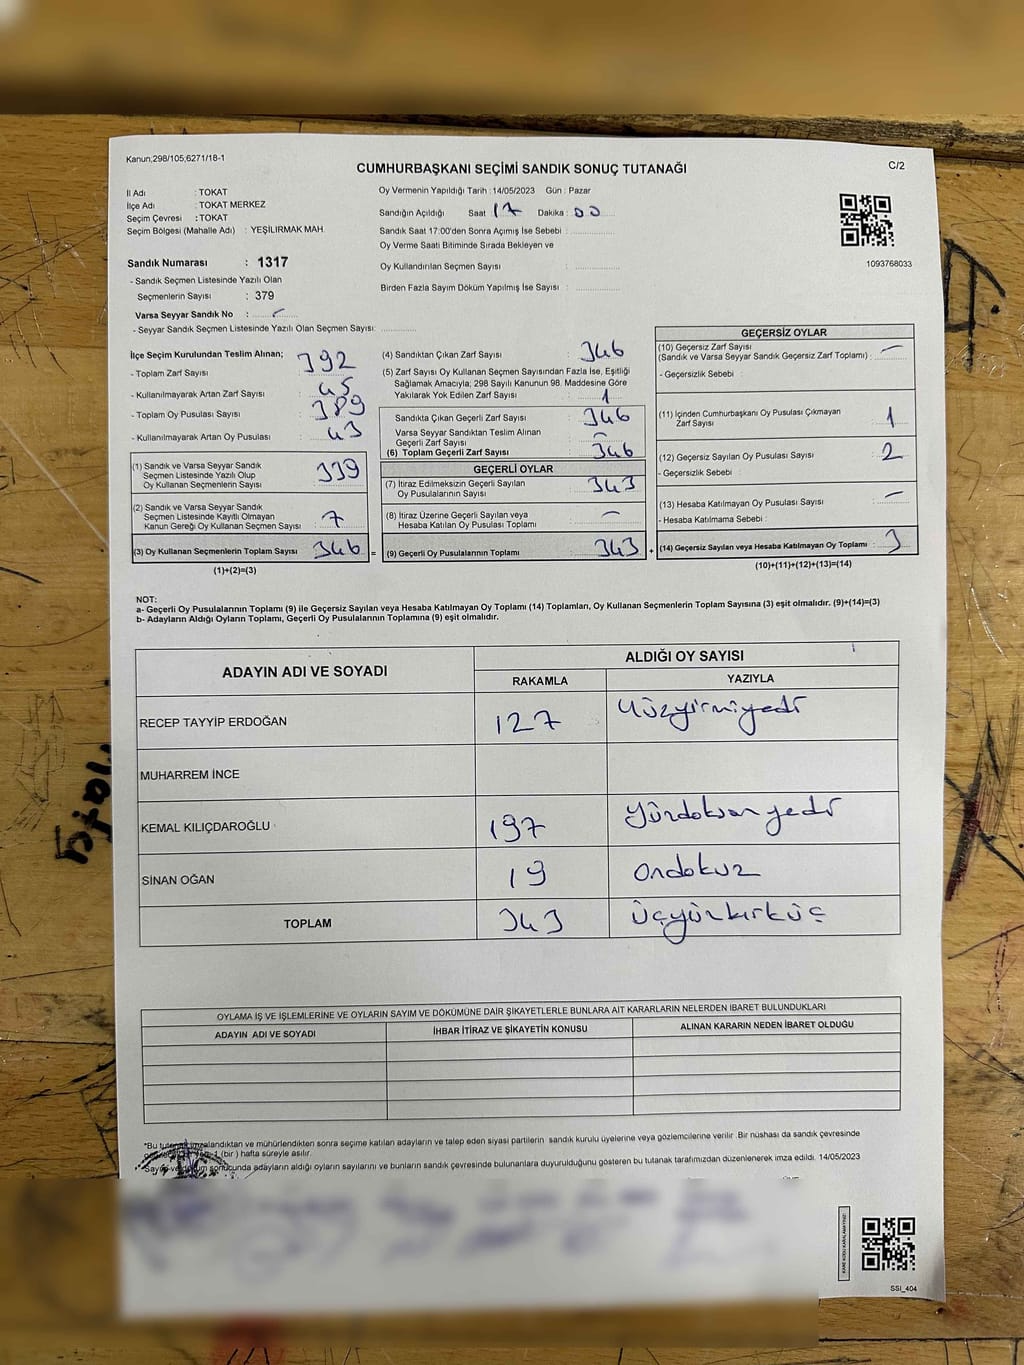 Kanun,298/105,6271/18-1
CUMHURBAŞKANI SEÇİMİ SANDIK SONUÇ TUTANAĞI
C/2
İl Adı : TOKAT
İlçe Adı : TOKAT MERKEZ
Seçim Çevresi : TOKAT
Seçim Bölgesi (Mahalle Adı) : YEŞİLIRMAK MAH.
Sandık Numarası : 1317
- Sandık Seçmen Listesinde Yazılı Olan
Seçmenlerin Sayısı : 379
Varsa Seyyar Sandık No :
- Seyyar Sandık Seçmen Listesinde Yazılı Olan Seçmen Sayısı:
Oy Vermenin Yapıldığı Tarih : 14/05/2023 Gün : Pazar
Sandığın Açıldığı Saat 17 Dakika : 00
Sandık Saat 17:00'den Sonra Açımış İse Sebebi :
Oy Verme Saati Bitiminde Sırada Bekleyen ve
Oy Kullandırılan Seçmen Sayısı :
Birden Fazla Sayım Döküm Yapılmış İse Sayısı :
1093768033
İlçe Seçim Kurulundan Teslim Alınan;
- Toplam Zarf Sayısı : 392
- Kullanılmayarak Artan Zarf Sayısı : 45
- Toplam Oy Pusulası Sayısı : 389
- Kullanılmayarak Artan Oy Pusulası : 43
(1) Sandık ve Varsa Seyyar Sandık
Seçmen Listesinde Yazılı Olup
Oy Kullanan Seçmenlerin Sayısı : 339
(2) Sandık ve Varsa Seyyar Sandık
Seçmen Listesinde Kayıtlı Olmayan
Kanun Gereği Oy Kullanan Seçmen Sayısı : 7
(3) Oy Kullanan Seçmenlerin Toplam Sayısı : 346 =
(1)+(2)=(3)
(4) Sandıktan Çıkan Zarf Sayısı : 346
(5) Zarf Sayısı Oy Kullanan Seçmen Sayısından Fazla İse, Eşitliği
Sağlamak Amacıyla; 298 Sayılı Kanunun 98. Maddesine Göre
Yakılarak Yok Edilen Zarf Sayısı : 1
Sandıkta Çıkan Geçerli Zarf Sayısı : 346
Varsa Seyyar Sandıktan Teslim Alınan
Geçerli Zarf Sayısı : -
(6) Toplam Geçerli Zarf Sayısı : 346
GEÇERLİ OYLAR
(7) İtiraz Edilmeksizin Geçerli Sayılan
Oy Pusulalarının Sayısı : 343
(8) İtiraz Üzerine Geçerli Sayılan veya
Hesaba Katılan Oy Pusulası Toplamı : -
(9) Geçerli Oy Pusulalarının Toplamı : 343 +
GEÇERSİZ OYLAR
(10) Geçersiz Zarf Sayısı
(Sandık ve Varsa Seyyar Sandık Geçersiz Zarf Toplamı) : -
- Geçersizlik Sebebi :
(11) İçinden Cumhurbaşkanı Oy Pusulası Çıkmayan
Zarf Sayısı : 1
(12) Geçersiz Sayılan Oy Pusulası Sayısı : 2
- Geçersizlik Sebebi :
(13) Hesaba Katılmayan Oy Pusulası Sayısı : -
- Hesaba Katılmama Sebebi :
(14) Geçersiz Sayılan veya Hesaba Katılmayan Oy Toplamı : 3
(10)+(11)+(12)+(13)=(14)
NOT:
a- Geçerli Oy Pusulalarının Toplamı (9) ile Geçersiz Sayılan veya Hesaba Katılmayan Oy Toplamı (14) Toplamları, Oy Kullanan Seçmenlerin Toplam Sayısına (3) eşit olmalıdır. (9)+(14)=(3)
b- Adayların Aldığı Oyların Toplamı, Geçerli Oy Pusulalarının Toplamına (9) eşit olmalıdır.
ADAYIN ADI VE SOYADI ALDIĞI OY SAYISI
RAKAMLA YAZIYLA
RECEP TAYYİP ERDOĞAN 127 yüzyirmiyedi
MUHARREM İNCE
KEMAL KILIÇDAROĞLU 197 yüzdoksanyedi
SİNAN OĞAN 19 Ondokuz
TOPLAM 343 Üçyüzkırküç
OYLAMA İŞ VE İŞLEMLERİNE VE OYLARIN SAYIM VE DÖKÜMÜNE DAİR ŞİKAYETLERLE BUNLARA AİT KARARLARIN NELERDEN İBARET BULUNDUKLARI
ADAYIN ADI VE SOYADI İHBAR İTİRAZ VE ŞİKAYETİN KONUSU ALINAN KARARIN NEDEN İBARET OLDUĞU
*Bu tutanak imzalandıktan ve mühürlendikten sonra seçime katılan adayların ve talep eden siyasi partilerin sandık kurulu üyelerine veya gözlemcilerine verilir .Bir nüshası da sandık çevresinde
1 (bir ) hafta süreyle asılır.
sonucunda adayların aldığı oyların sayılarını ve bunların sandık çevresinde bulunanlara duyurulduğunu gösteren bu tutanak tarafımızdan düzenlenerek imza edildi. 14/05/2023
SSI_404